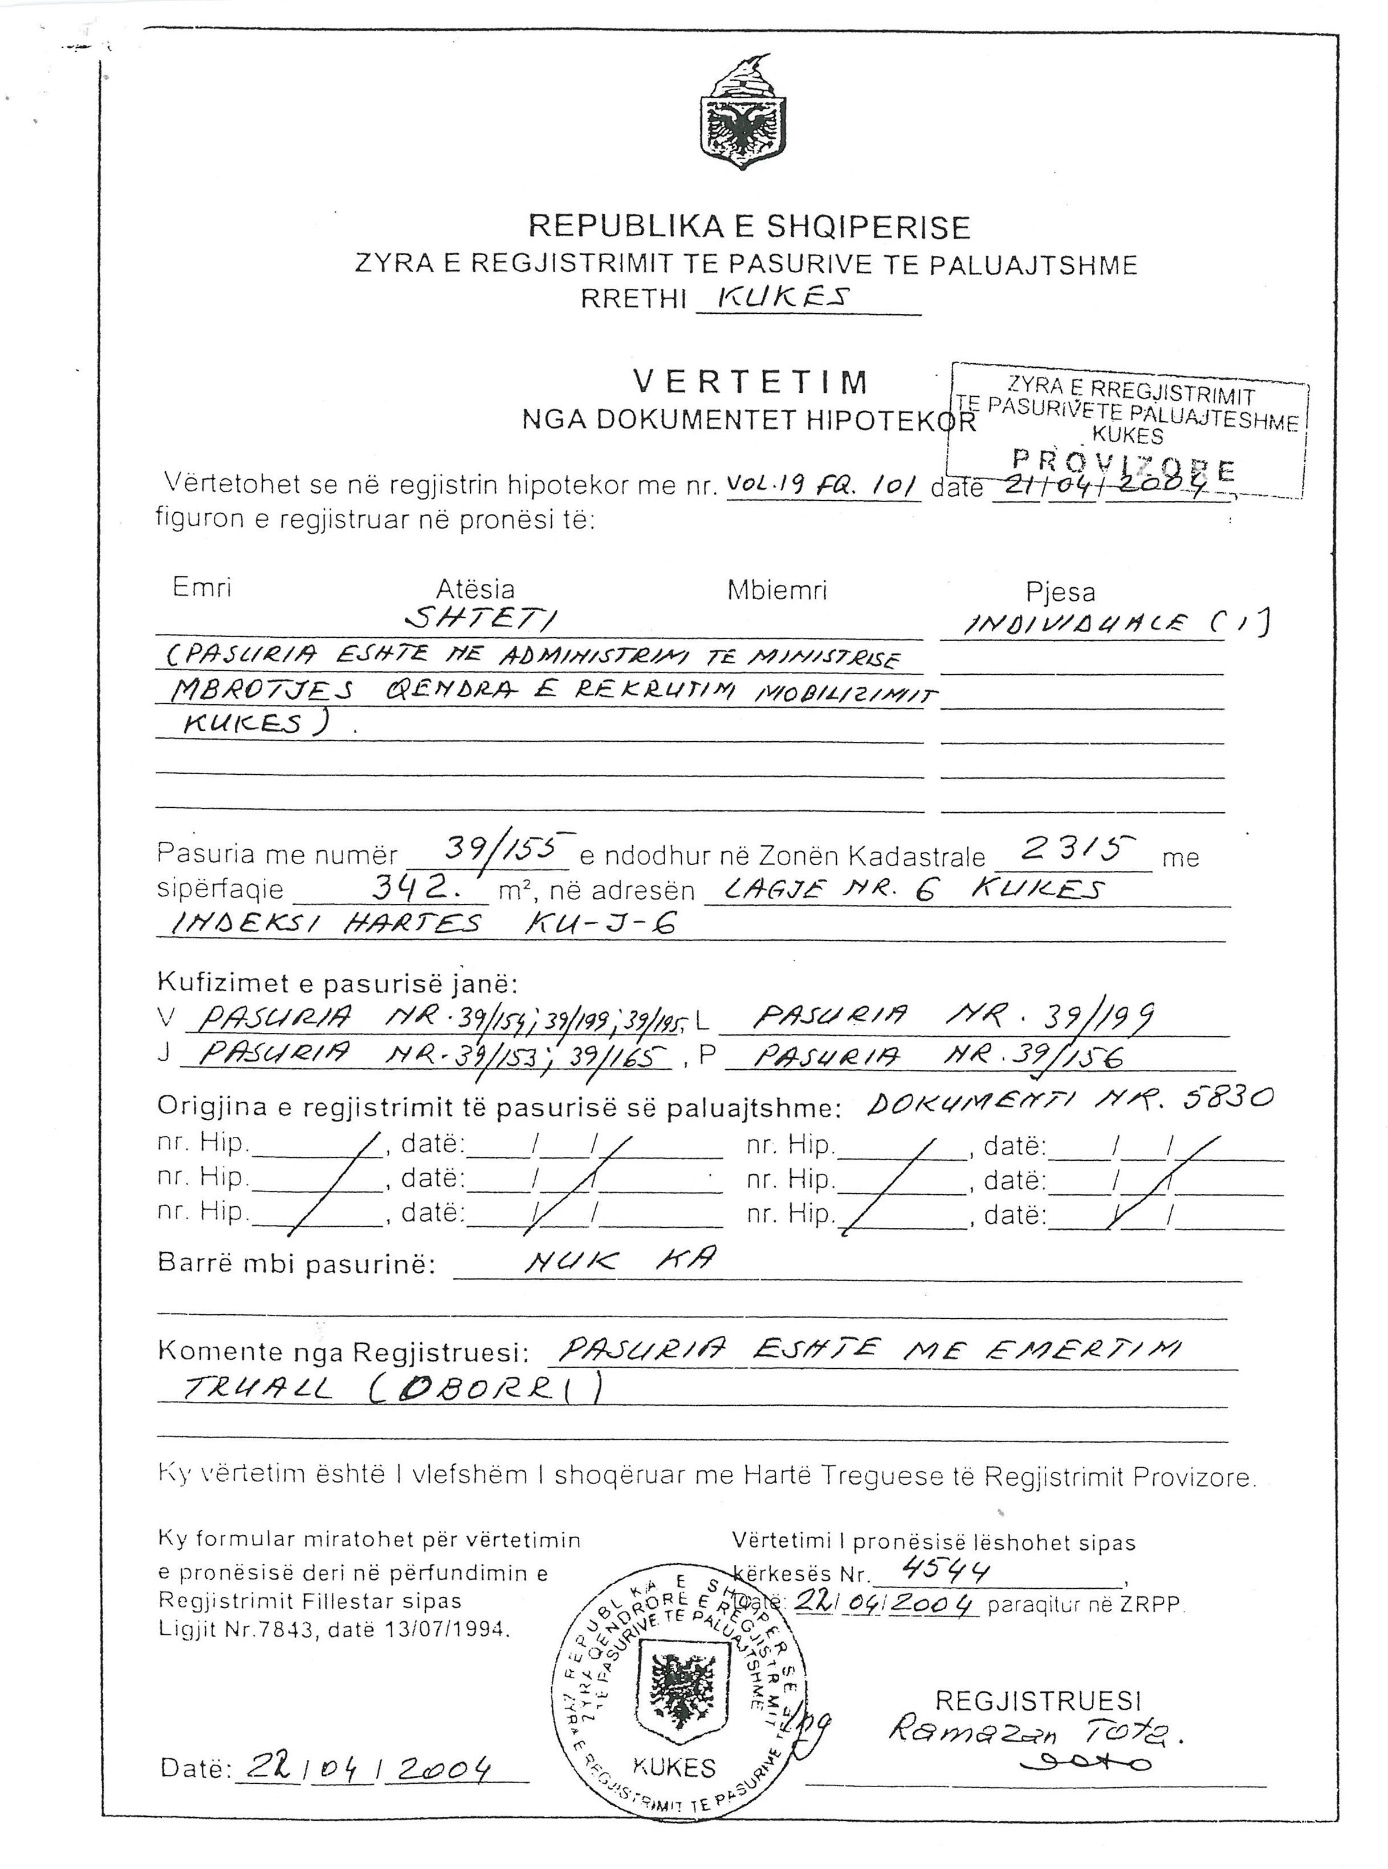 REPUBLIKA E SHQIPERISE
ZYRA E REGJISTRIMIT TE PASURIVE TE PALUAJTSHME
RRETHI KUKES
VERTETIM
NGA DOKUMENTET HIPOTEKOR
ZYRA E RREGJISTRIMIT
TE PASURIVETE PALUAJTESHME
KUKES
PROVIZORE
Vërtetohet se në regjistrin hipotekor me nr. VOL.19 FQ. 101 datë 21/04/2004,
figuron e regjistruar në pronësi të:
Emri Atësia Mbiemri Pjesa
SHTETI INDIVIDUALE (1)
(PASURIA ESHTE NE ADMINISTRIM TE MINISTRISE
MBROTJES QENDRA E REKRUTIM MOBILIZIMIT
KUKES).
Pasuria me numër 39/155 e ndodhur në Zonën Kadastrale 2315 me
sipërfaqie 342. m², në adresën LAGJE NR. 6 KUKES
INDEKSI HARTES KU-J-6
Kufizimet e pasurisë janë:
V PASURIA NR. 39/154; 39/199; 39/195, L PASURIA NR. 39/199
J PASURIA NR. 39/153; 39/165, P PASURIA NR. 39/156
Origjina e regjistrimit të pasurisë së paluajtshme: DOKUMENTI NR. 5830
nr. Hip.____, datë:__/__/____ nr. Hip.____, datë:__/__/____
nr. Hip.____, datë:__/__/____ nr. Hip.____, datë:__/__/____
nr. Hip.____, datë:__/__/____ nr. Hip.____, datë:__/__/____
Barrë mbi pasurinë: NUK KA
Komente nga Regjistruesi: PASURIA ESHTE ME EMERTIM
TRUALL (OBORRI)
Ky vërtetim është I vlefshëm I shoqëruar me Hartë Treguese të Regjistrimit Provizore.
Ky formular miratohet për vërtetimin
e pronësisë deri në përfundimin e
Regjistrimit Fillestar sipas
Ligjit Nr.7843, datë 13/07/1994.
Vërtetimi I pronësisë lëshohet sipas
kërkesës Nr. 4544,
Datë: 22/04/2004 paraqitur në ZRPP.
REPUBLIKA E SHQIPERISE
ZYRA QENDRORE E REGJISTRIMIT
TE PASURIVE TE PALUAJTSHME
ZYRA E REGJISTRIMIT TE PASURIVE TE
KUKES
REGJISTRUESI
Ing Ramazan Tota.
Datë: 22/04/2004